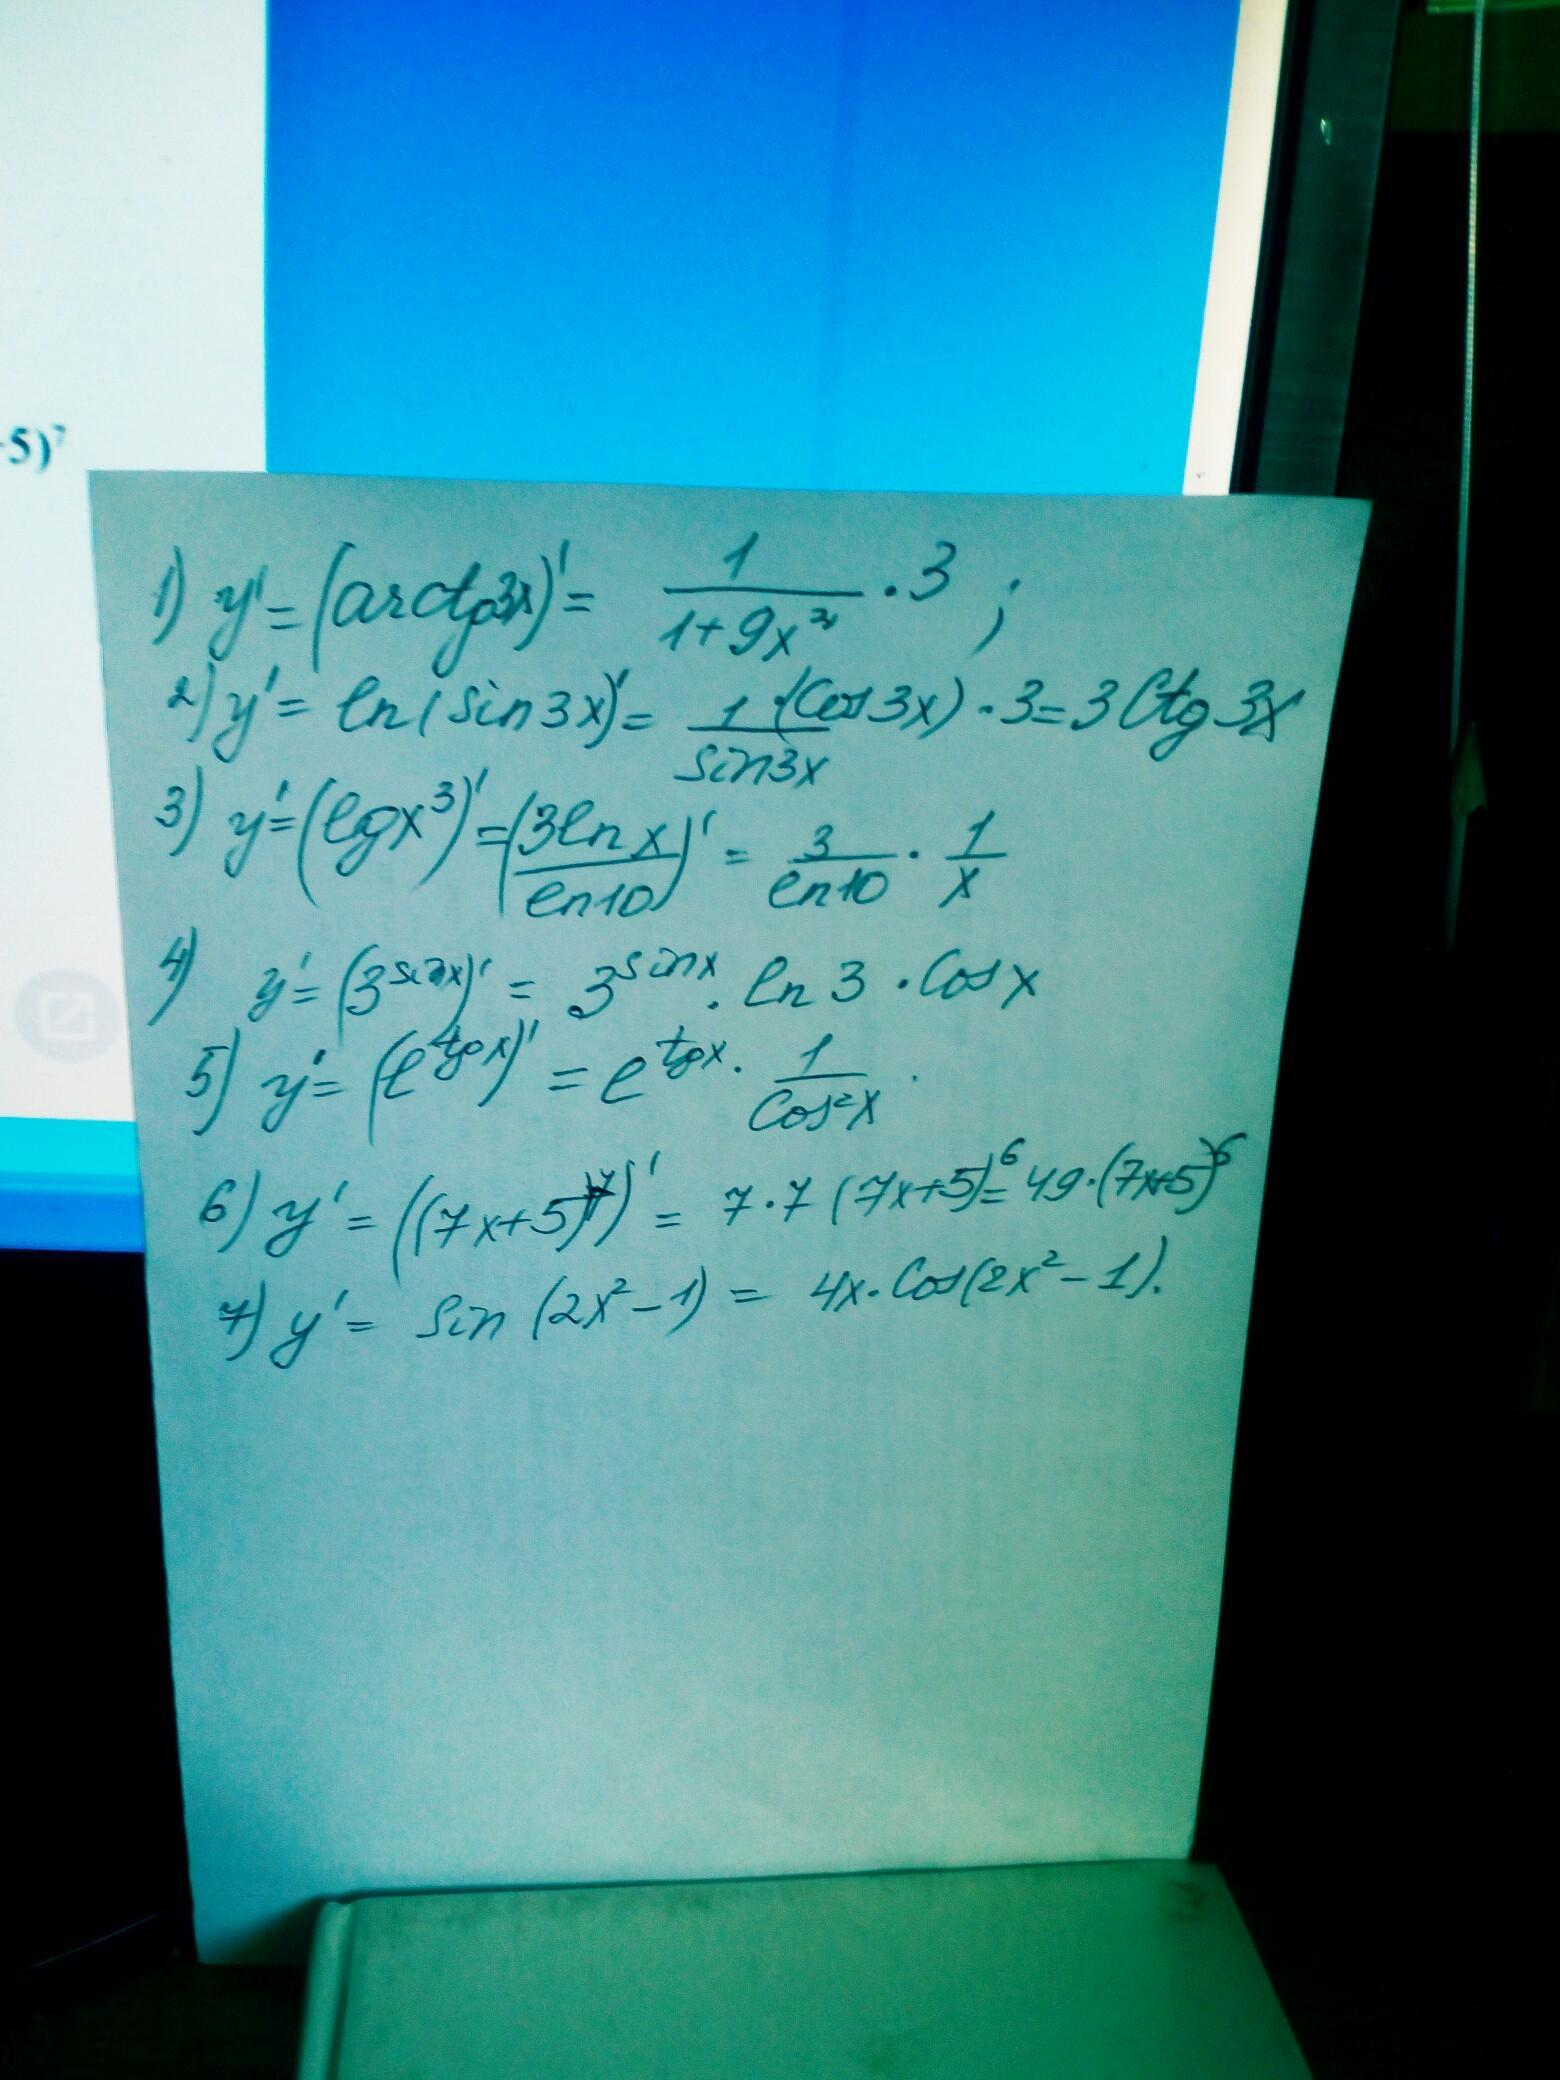 -5)⁷
1) y' = (arctg3x)' = 1/(1+9x²) · 3 ;
2) y' = ln(sin3x)' = 1/sin3x · (Cos3x) · 3 = 3 Ctg 3x
3) y' = (lgx³)' = (3lnx/ln10)' = 3/ln10 · 1/x
4) y' = (3^sinx)' = 3^sinx · ln3 · Cosx
5) y' = (e^tgx)' = e^tgx · 1/Cos²x
6) y' = ((7x+5)⁷)' = 7·7(7x+5)⁶ = 49·(7x+5)⁶
7) y' = Sin(2x²-1) = 4x·Cos(2x²-1).